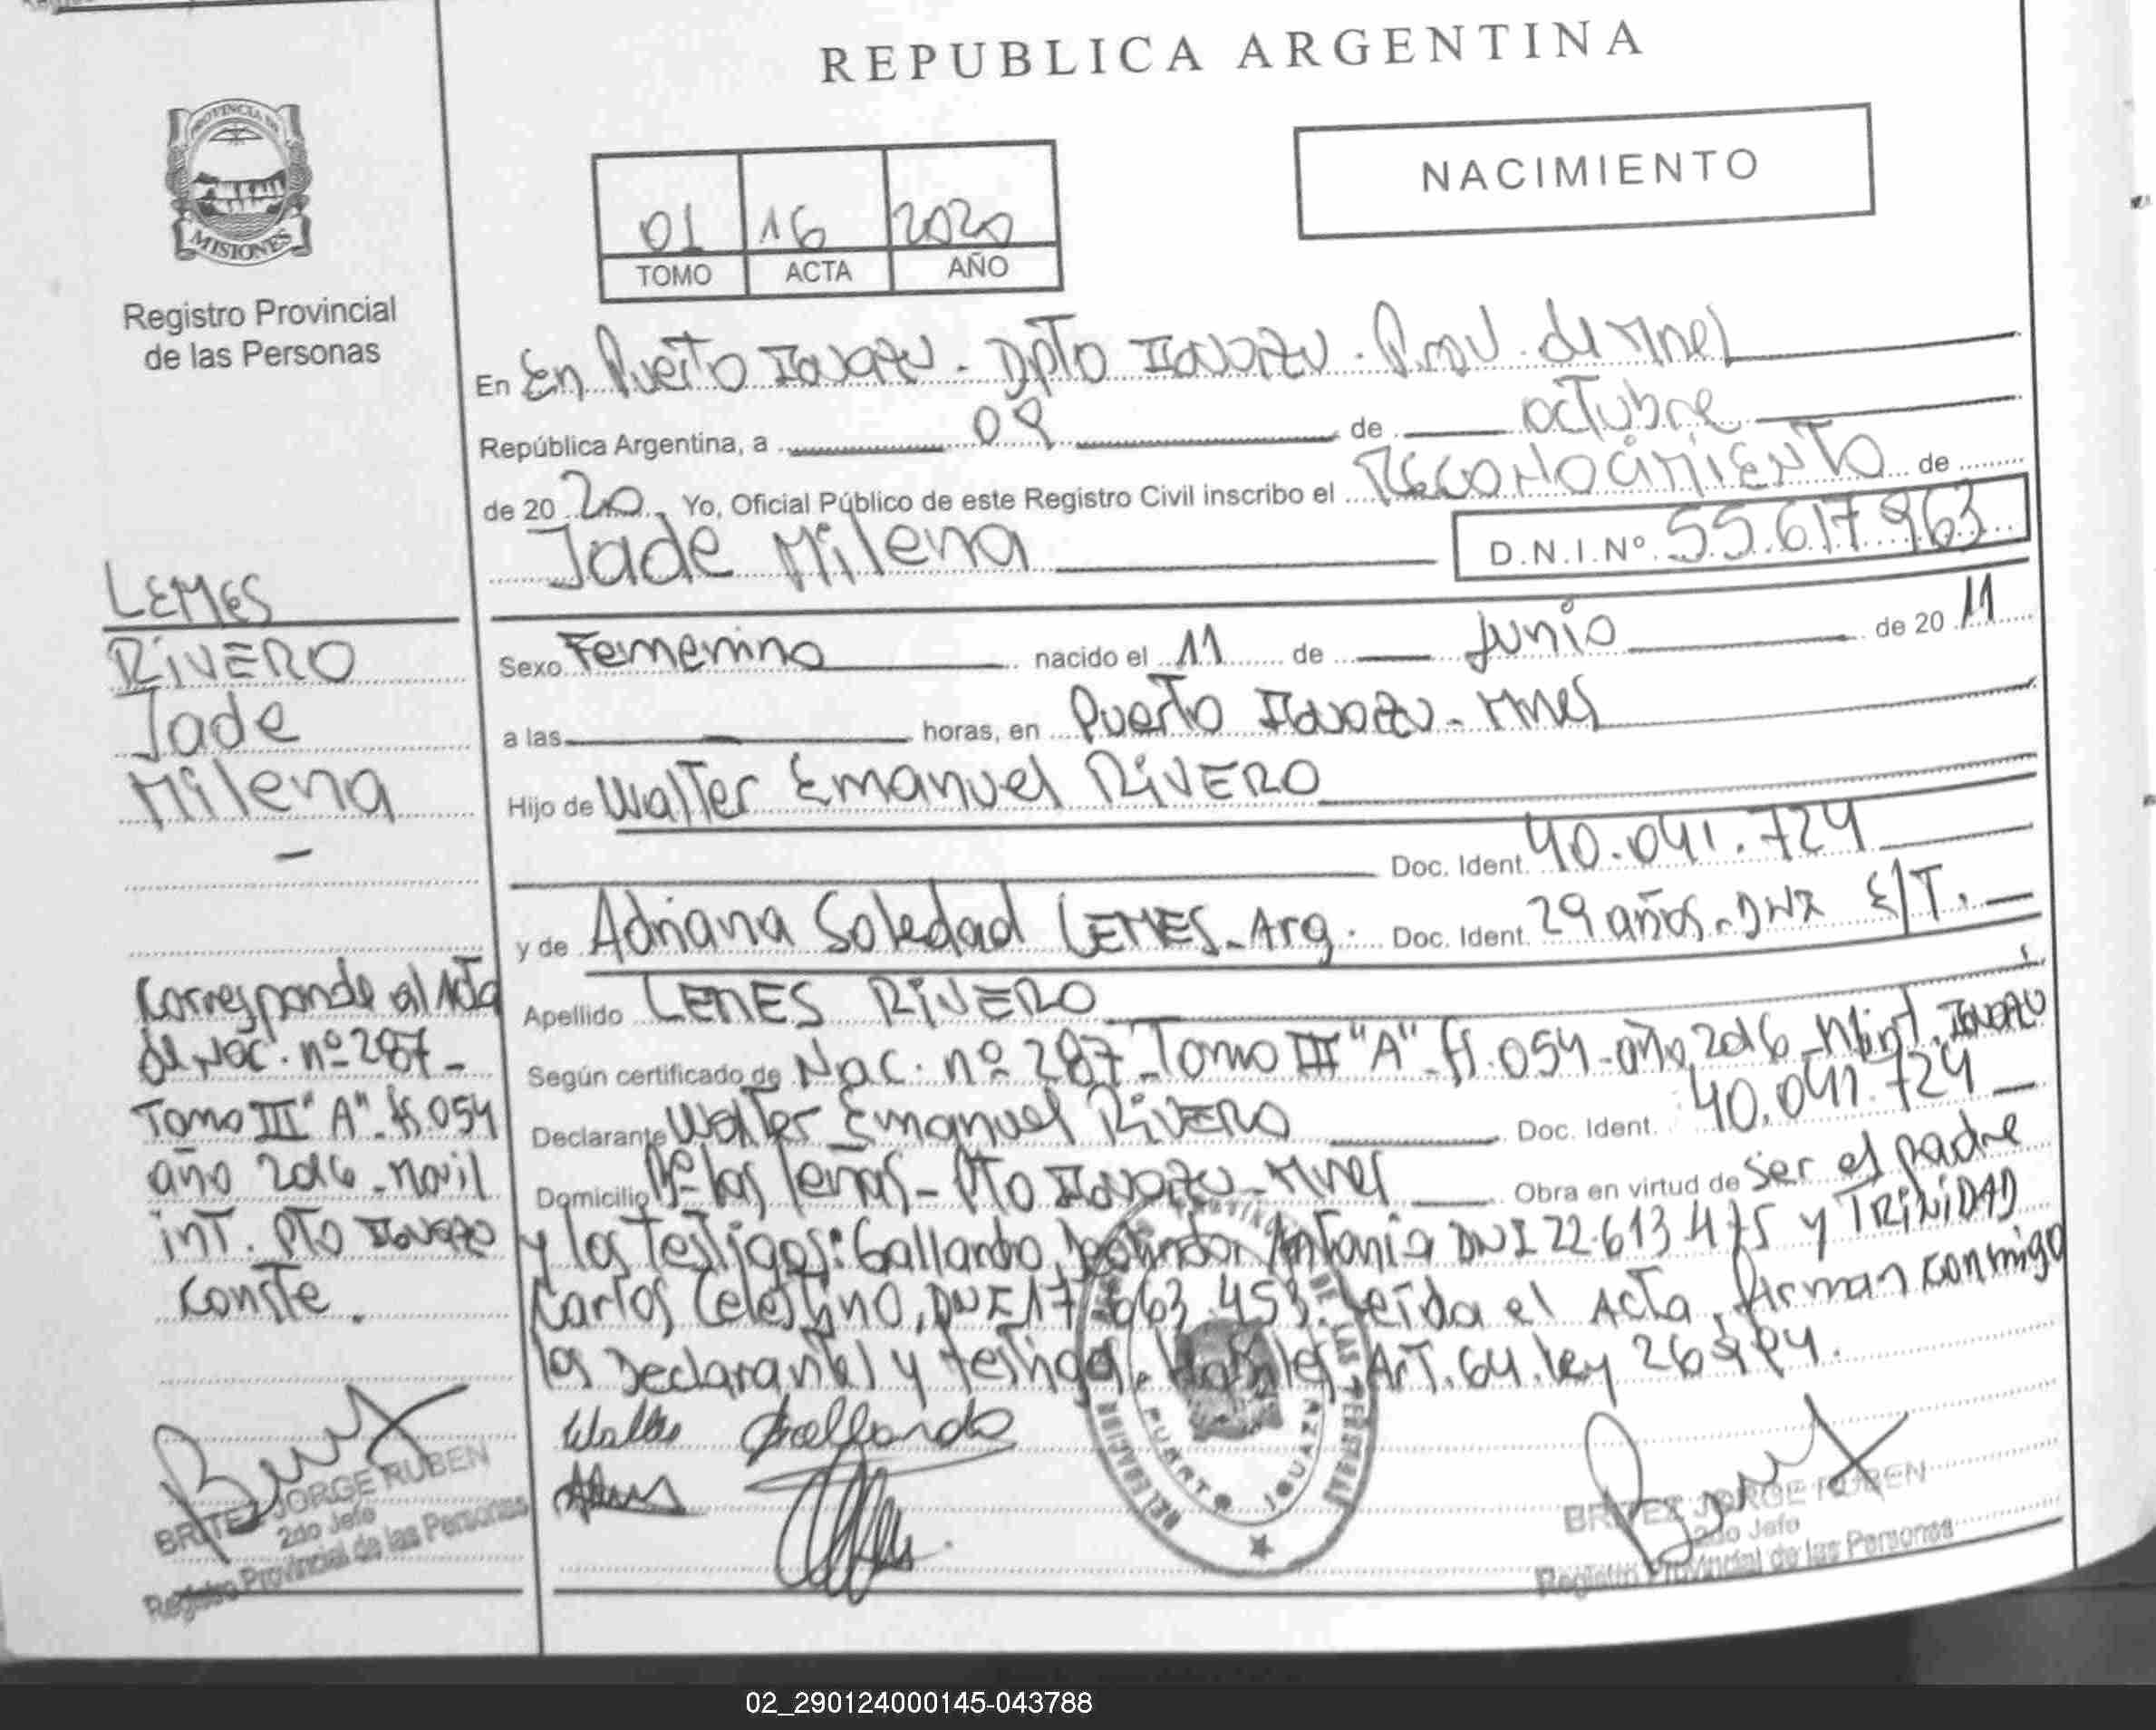 REPUBLICA ARGENTINA
PROVINCIA DE
MISIONES
Registro Provincial
de las Personas
NACIMIENTO
01 16 2020
TOMO ACTA AÑO
En En Puerto Iguazu - Dpto Iguazu. Prov. de Mnes
República Argentina, a 09 de octubre
de 2020 Yo, Oficial Público de este Registro Civil inscribo el RECONOCIMIENTO de
Jade Milena D.N.I.Nº 55.617.963
Sexo Femenino nacido el 11 de Junio de 2011
a las — horas, en Puerto Iguazu - Mnes
Hijo de Walter Emanuel RIVERO
Doc. Ident. 40.041.724
y de Adriana Soledad LEMES - Arg. Doc. Ident. 29 años - DNI E/T.
Apellido LEMES RIVERO
Según certificado de Nac. nº 287 - Tomo III "A" - fs. 054 - año 2016 - Iguazu
Declarante Walter Emanuel RIVERO Doc. Ident. 40.041.724
Domicilio Bº las leñas - Pto Iguazu - Mnes Obra en virtud de ser el padre
y los testigos: Gallardo, Antonia DNI 22.613.475 y TRINIDAD
Carlos Celestino, DNI 17.663.453. Leída el Acta, firman conmigo
los Declarante/s y testigos. Art. 64. ley 26994.
LEMES
RIVERO
Jade
Milena
—
Corresponde al Acta
de Nac. nº 287 -
Tomo III "A" - fs. 054
año 2016 - movil
int. Pto Iguazu
Conste.
BRITEZ JORGE RUBEN
2do Jefe
Registro Provincial de las Personas
Walter Gallardo
DE LAS PERSONAS
PUERTO IGUAZU
BRITEZ JORGE RUBEN
2do Jefe
Registro Provincial de las Personas
02_290124000145-043788